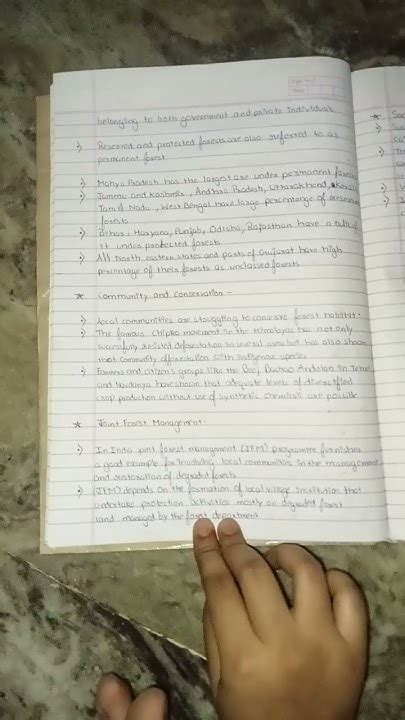 belonging to both government and private individuals.
Reserved and protected forests are also referred to as
permanent forest
Madhya Pradesh has the largest are under permanent forests
Jammu and Kashmir, Andhra Pradesh, Uttarakhand, Kerala
Tamil Nadu, West Bengal have large percentage of reserve
forests
Bihar, Haryana, Punjab, Odisha, Rajasthan have a bulk of
it under protected forests
All North eastern states and parts of Gujarat have high
percentage of their forests as unclassed forests
★ Community and Conservation -
Local communities are struggling to conserve forest habitat.
The famous Chipko movement in the Himalayas has not only
successfully resisted deforestation in several areas but has also shown
that community afforestation with indigenous species
Farmers and citizen's groups like the Beej Bachao Andolan in Tehri
and Navdanya have shown that adequate levels of diversified
crop production without use of synthetic chemicals are possible
★ Joint Forest Management.
In India joint forest management (JFM) programme furnishes
a good example for involving local communities in the management
and restoration of degraded forests
(JFM) depends on the formation of local village institution that
undertake protection activities mostly on degraded forest
land managed by the forest department
★ Sac